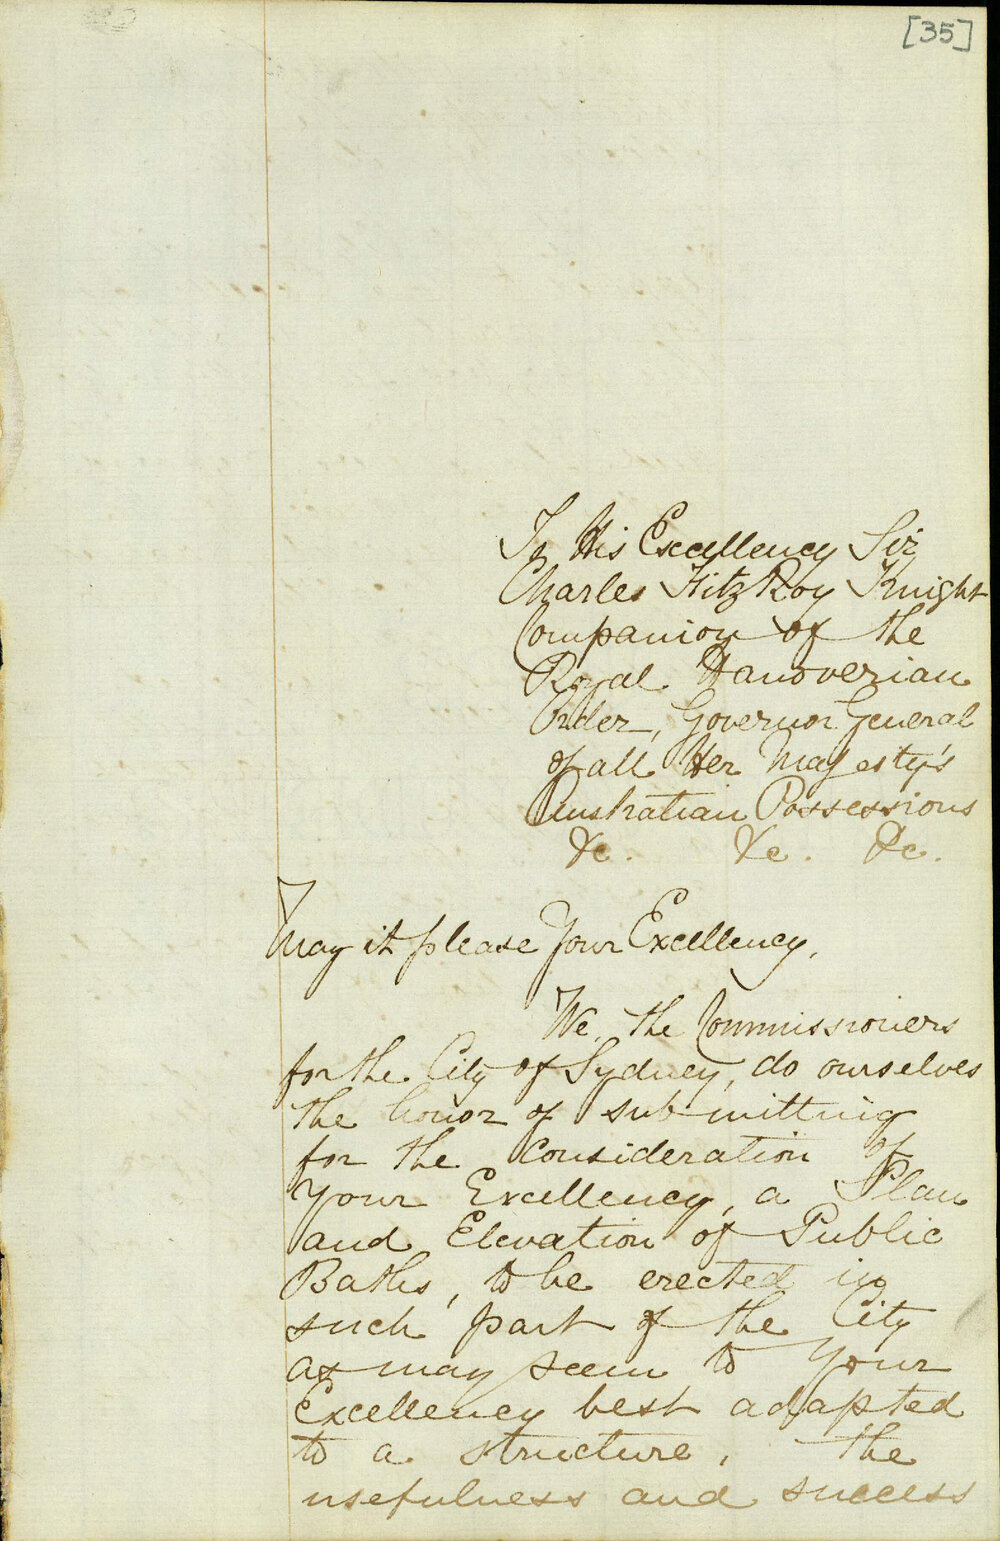 [35]
To His Excellency Sir
Charles FitzRoy Knight
Companion of the
Royal Hanoverian
Order, Governor General
of all Her Majesty's
Australian Possessions
&c. &c. &c.
May it please Your Excellency,
We, the Commissioners
for the City of Sydney, do ourselves
the honor of submitting
for the consideration of
Your Excellency, a Plan
and Elevation of Public
Baths, to be erected in
such part of the City
as may seem to Your
Excellency best adapted
to a structure, the
usefulness and success